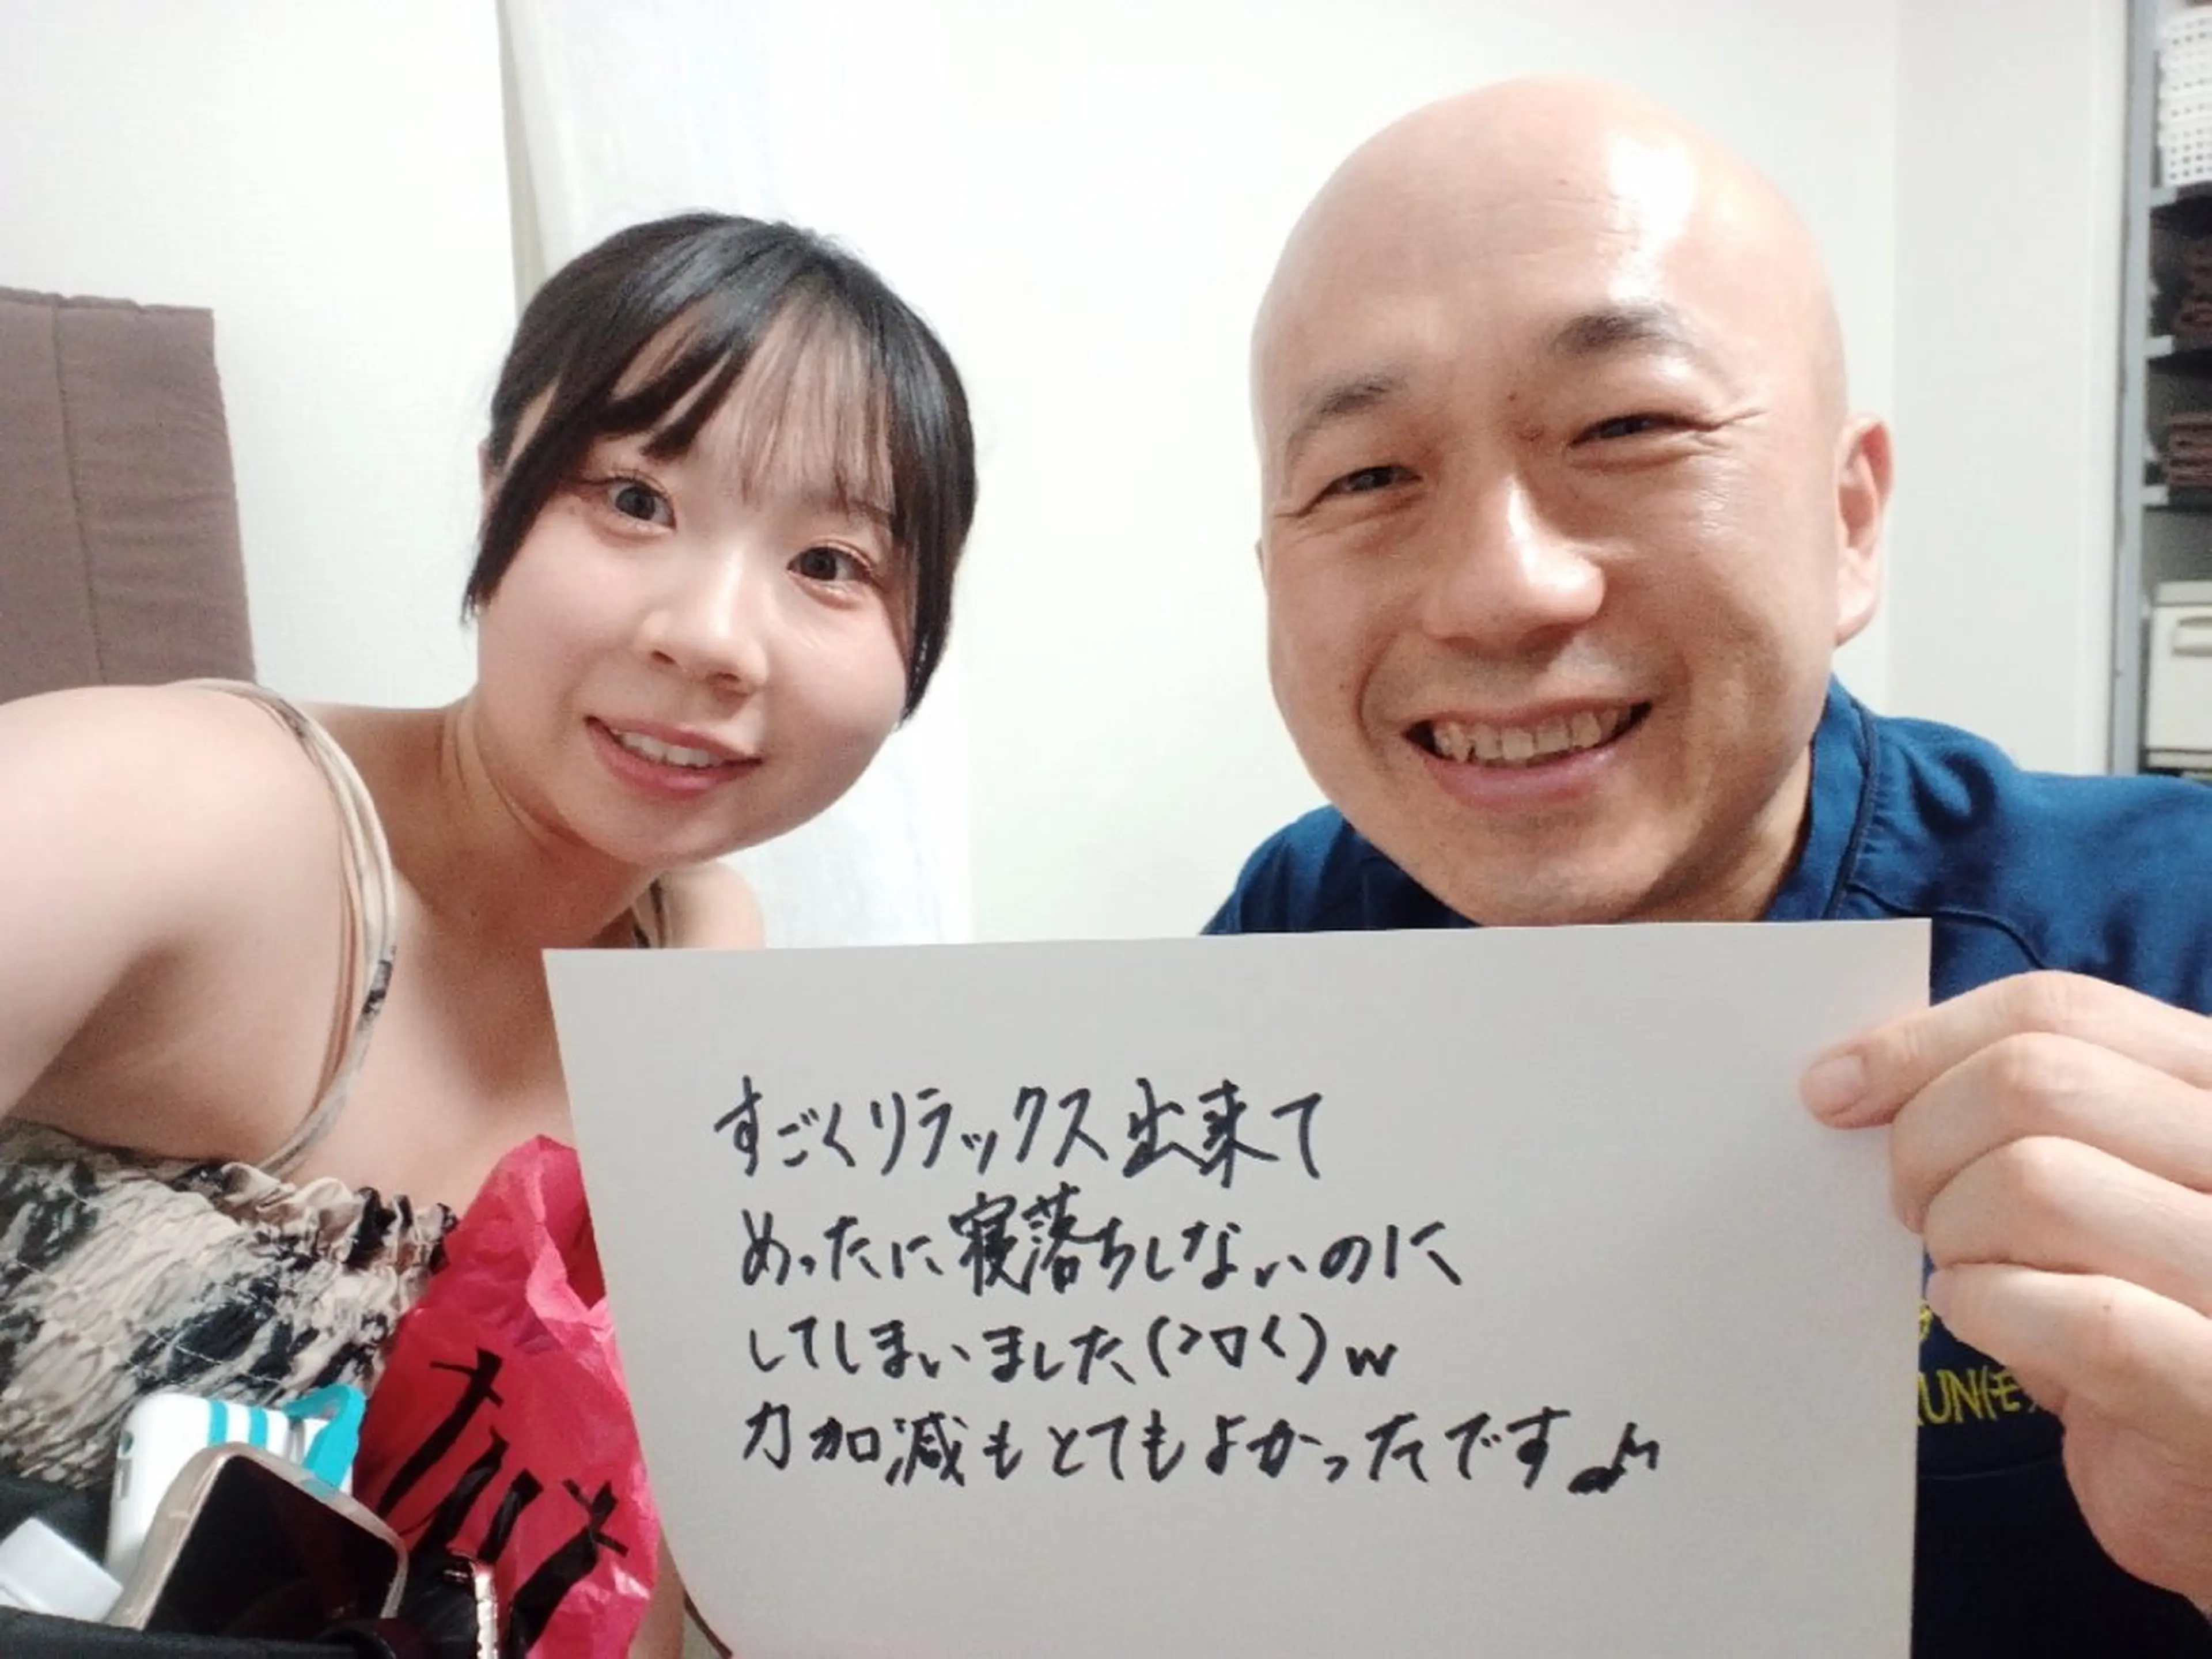 すごくリラックス出来て
めったに寝落ちしないのに
してしまいました(>ロ<)w
力加減もとてもよかったです♪
UN(モ